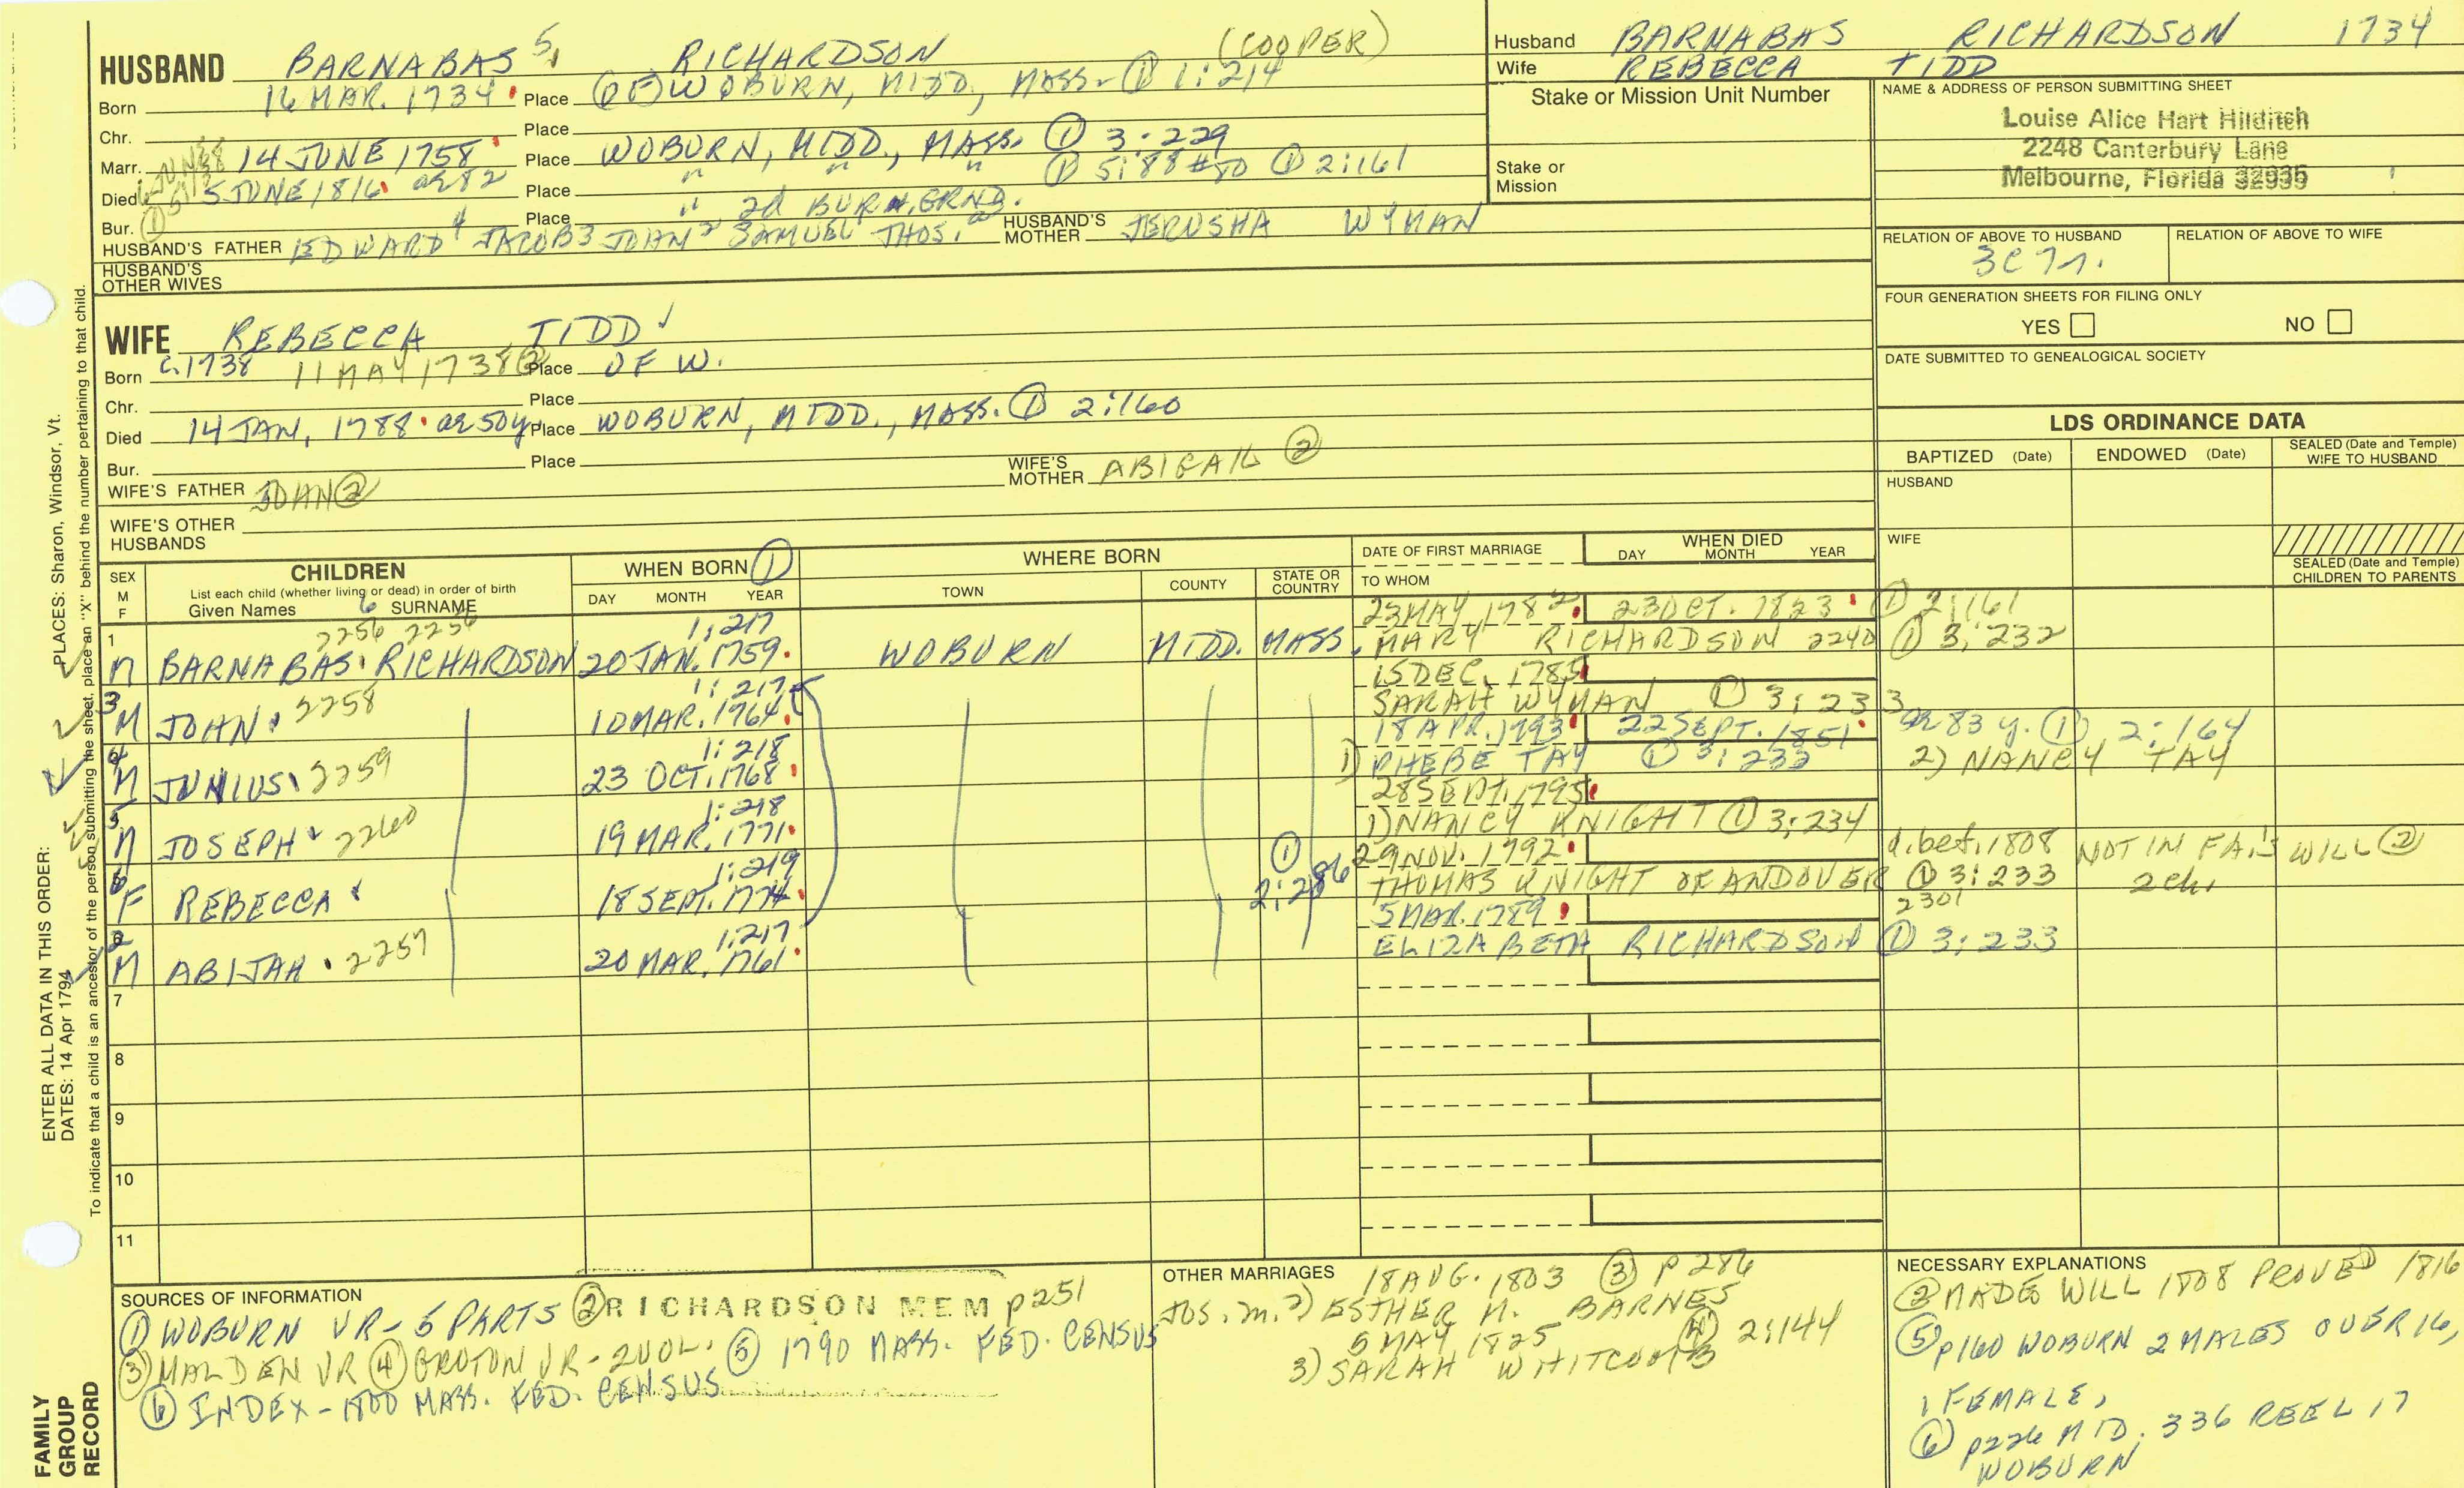 HUSBAND BARNABAS 5 RICHARDSON (COOPER)
Born 16 MAR. 1734 Place (OF) WOBURN, MIDD., MASS. ① 1:214
Chr. Place
Marr. 14 JUNE 1758 Place WOBURN, MIDD., MASS. ① 3:229
Died 5 JUNE 1816 ae 82 Place " " " ① 5:88 ① 2:161
Bur. Place " 2d BURN. GRND.
HUSBAND'S FATHER EDWARD 4 JACOB 3 JOHN 2 SAMUEL THOS. HUSBAND'S MOTHER JERUSHA WYMAN
HUSBAND'S OTHER WIVES
WIFE REBECCA TIDD
Born C. 1738 11 MAY 1738 ② Place OF W.
Chr. Place
Died 14 JAN. 1788 ae 50y Place WOBURN, MIDD., MASS. ① 2:160
Bur. Place
WIFE'S FATHER JOHN ② WIFE'S MOTHER ABIGAIL ②
WIFE'S OTHER HUSBANDS
Husband BARNABAS RICHARDSON 1734
Wife REBECCA TIDD
Stake or Mission Unit Number
Stake or Mission
NAME & ADDRESS OF PERSON SUBMITTING SHEET
Louise Alice Hart Hilditch
2248 Canterbury Lane
Melbourne, Florida 32935
RELATION OF ABOVE TO HUSBAND RELATION OF ABOVE TO WIFE
3C7r.
FOUR GENERATION SHEETS FOR FILING ONLY
YES NO
DATE SUBMITTED TO GENEALOGICAL SOCIETY
LDS ORDINANCE DATA
BAPTIZED (Date) ENDOWED (Date) SEALED (Date and Temple) WIFE TO HUSBAND
HUSBAND
WIFE
SEALED (Date and Temple) CHILDREN TO PARENTS
SEX M F
CHILDREN
List each child (whether living or dead) in order of birth
Given Names 6 SURNAME
WHEN BORN ①
DAY MONTH YEAR
WHERE BORN
TOWN COUNTY STATE OR COUNTRY
DATE OF FIRST MARRIAGE
TO WHOM
WHEN DIED
DAY MONTH YEAR
1 2256 2256 1:217 23 MAY 1782 23 OCT. 1823 ① 2:161
M BARNABAS RICHARDSON 20 JAN. 1759 WOBURN MIDD. MASS. MARY RICHARDSON 2240 ① 3:232
3 1:217 15 DEC. 1785
M JOHN 2258 10 MAR. 1764 SARAH WYMAN ① 3:233
4 1:218 18 APR. 1793 22 SEPT. 1851 ae 83 y. ① 2:164
M JUNIUS 2259 23 OCT. 1768 1) PHEBE TAY ① 3:233 2) NANCY TAY
5 1:218 28 SEPT. 1795
M JOSEPH 2260 19 MAR. 1771 1) NANCY KNIGHT ① 3:234
6 1:219 29 NOV. 1792 d. bef. 1808 NOT IN FA.'S WILL ②
F REBECCA 18 SEPT. 1774 ① 2:286 THOMAS KNIGHT OF ANDOVER ① 3:233 2 ch.
2 1:217 5 MAR. 1789 2301
M ABIJAH 2257 20 MAR. 1761 ELIZABETH RICHARDSON ① 3:233
7
8
9
10
11
SOURCES OF INFORMATION
① WOBURN VR - 5 PARTS ② RICHARDSON MEM p251
③ MALDEN VR ④ GROTON VR - 2 VOL. ⑤ 1790 MASS. FED. CENSUS
⑥ INDEX - 1800 MASS. FED. CENSUS
OTHER MARRIAGES 18 AUG. 1803 ③ p 286
JOS. m. 2) ESTHER M. BARNES
5 MAY 1825 ④ 2:144
3) SARAH WHITCOMB
NECESSARY EXPLANATIONS
② MADE WILL 1808 PROVED 1816
⑤ p160 WOBURN 2 MALES OVER 16,
1 FEMALE,
⑥ p226 MID. 336 REEL 17
WOBURN
ENTER ALL DATA IN THIS ORDER:
PLACES: Sharon, Windsor, Vt.
DATES: 14 Apr 1794
To indicate that a child is an ancestor of the person submitting the sheet, place an "X" behind the number pertaining to that child.
FAMILY GROUP RECORD